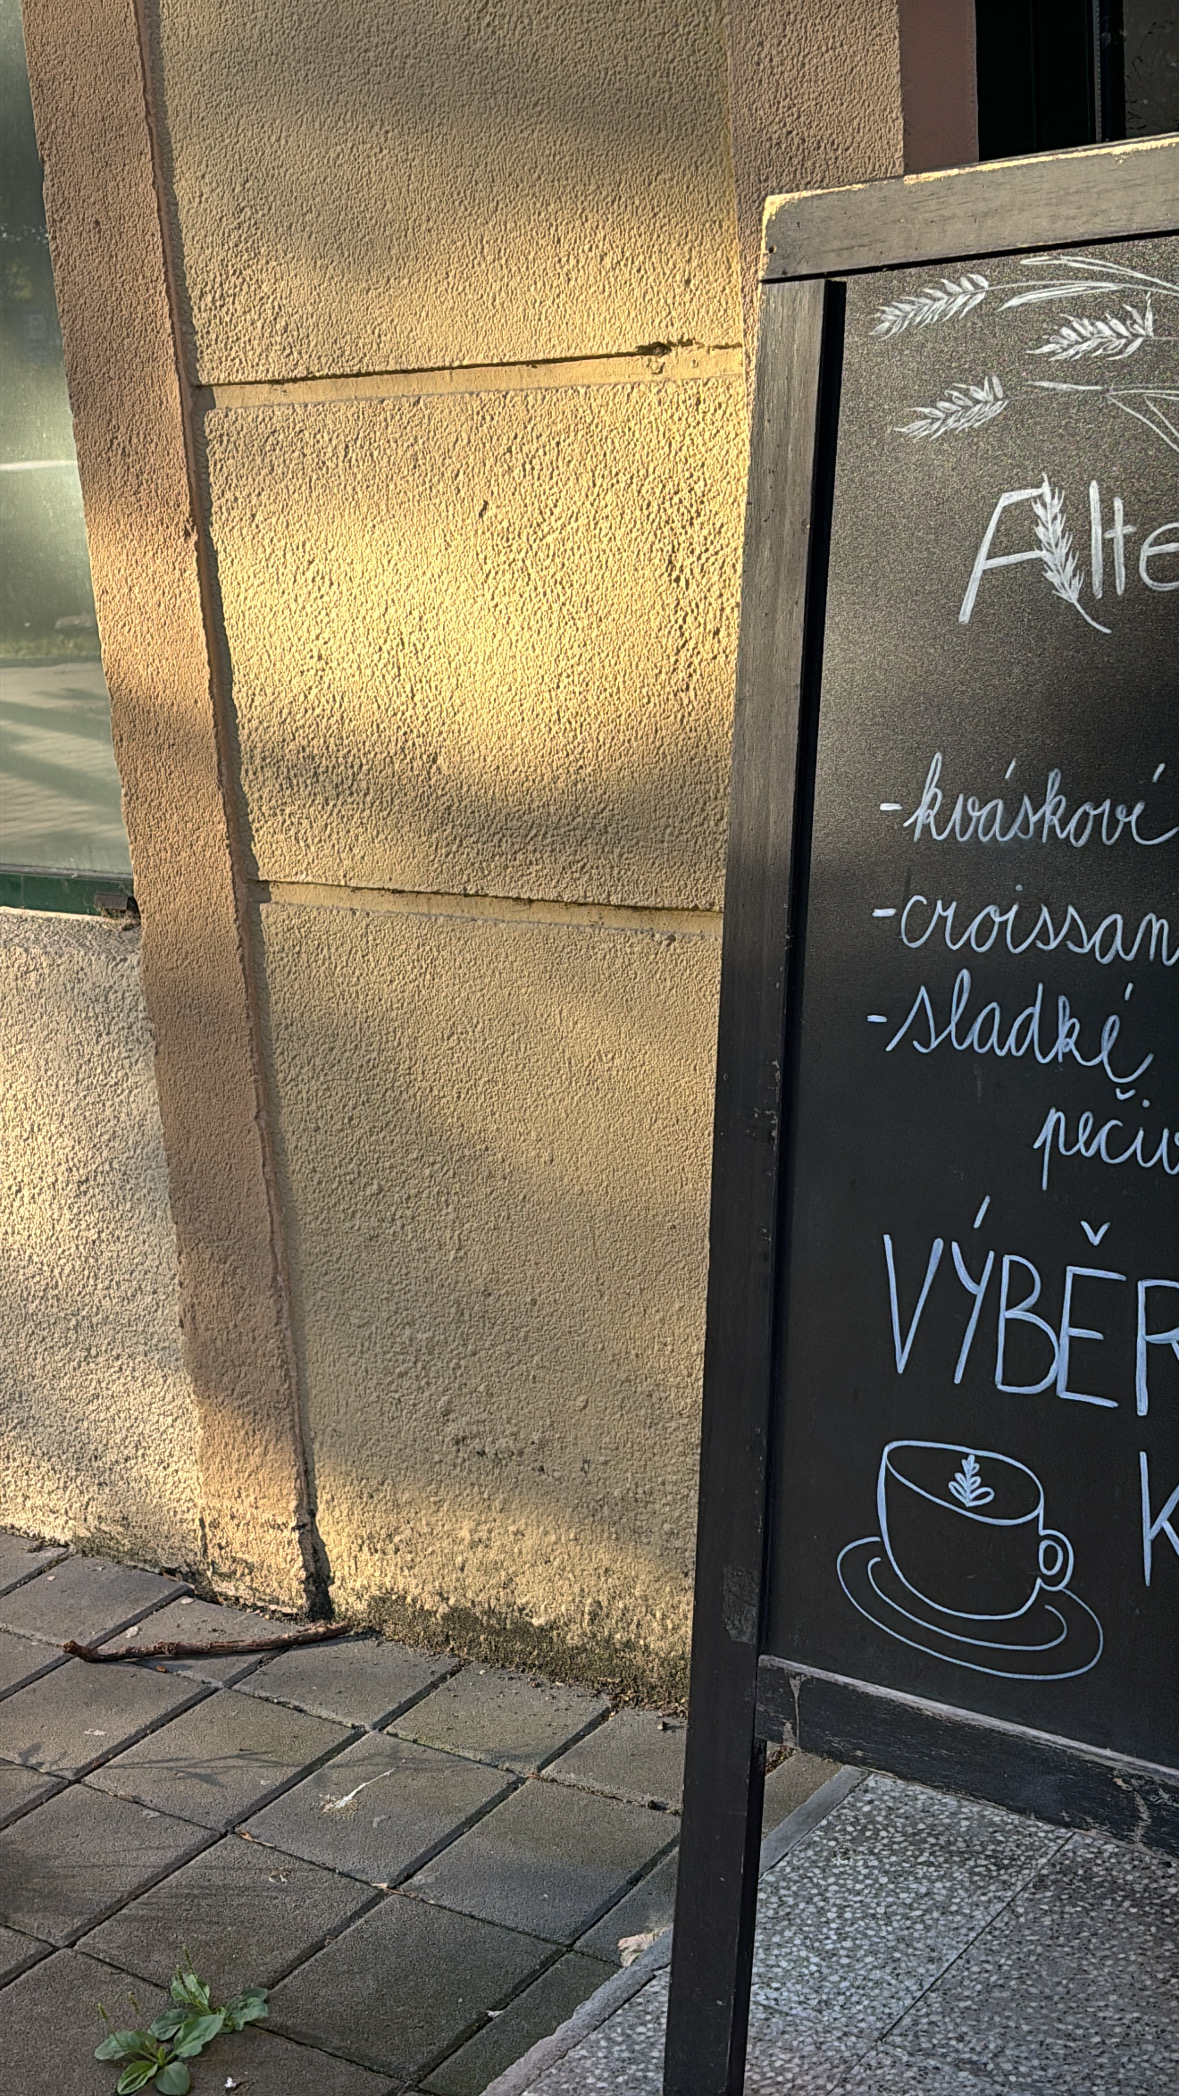 Alte
-kváskové
-croissan
-sladké
pečiv
VÝBĚR
K